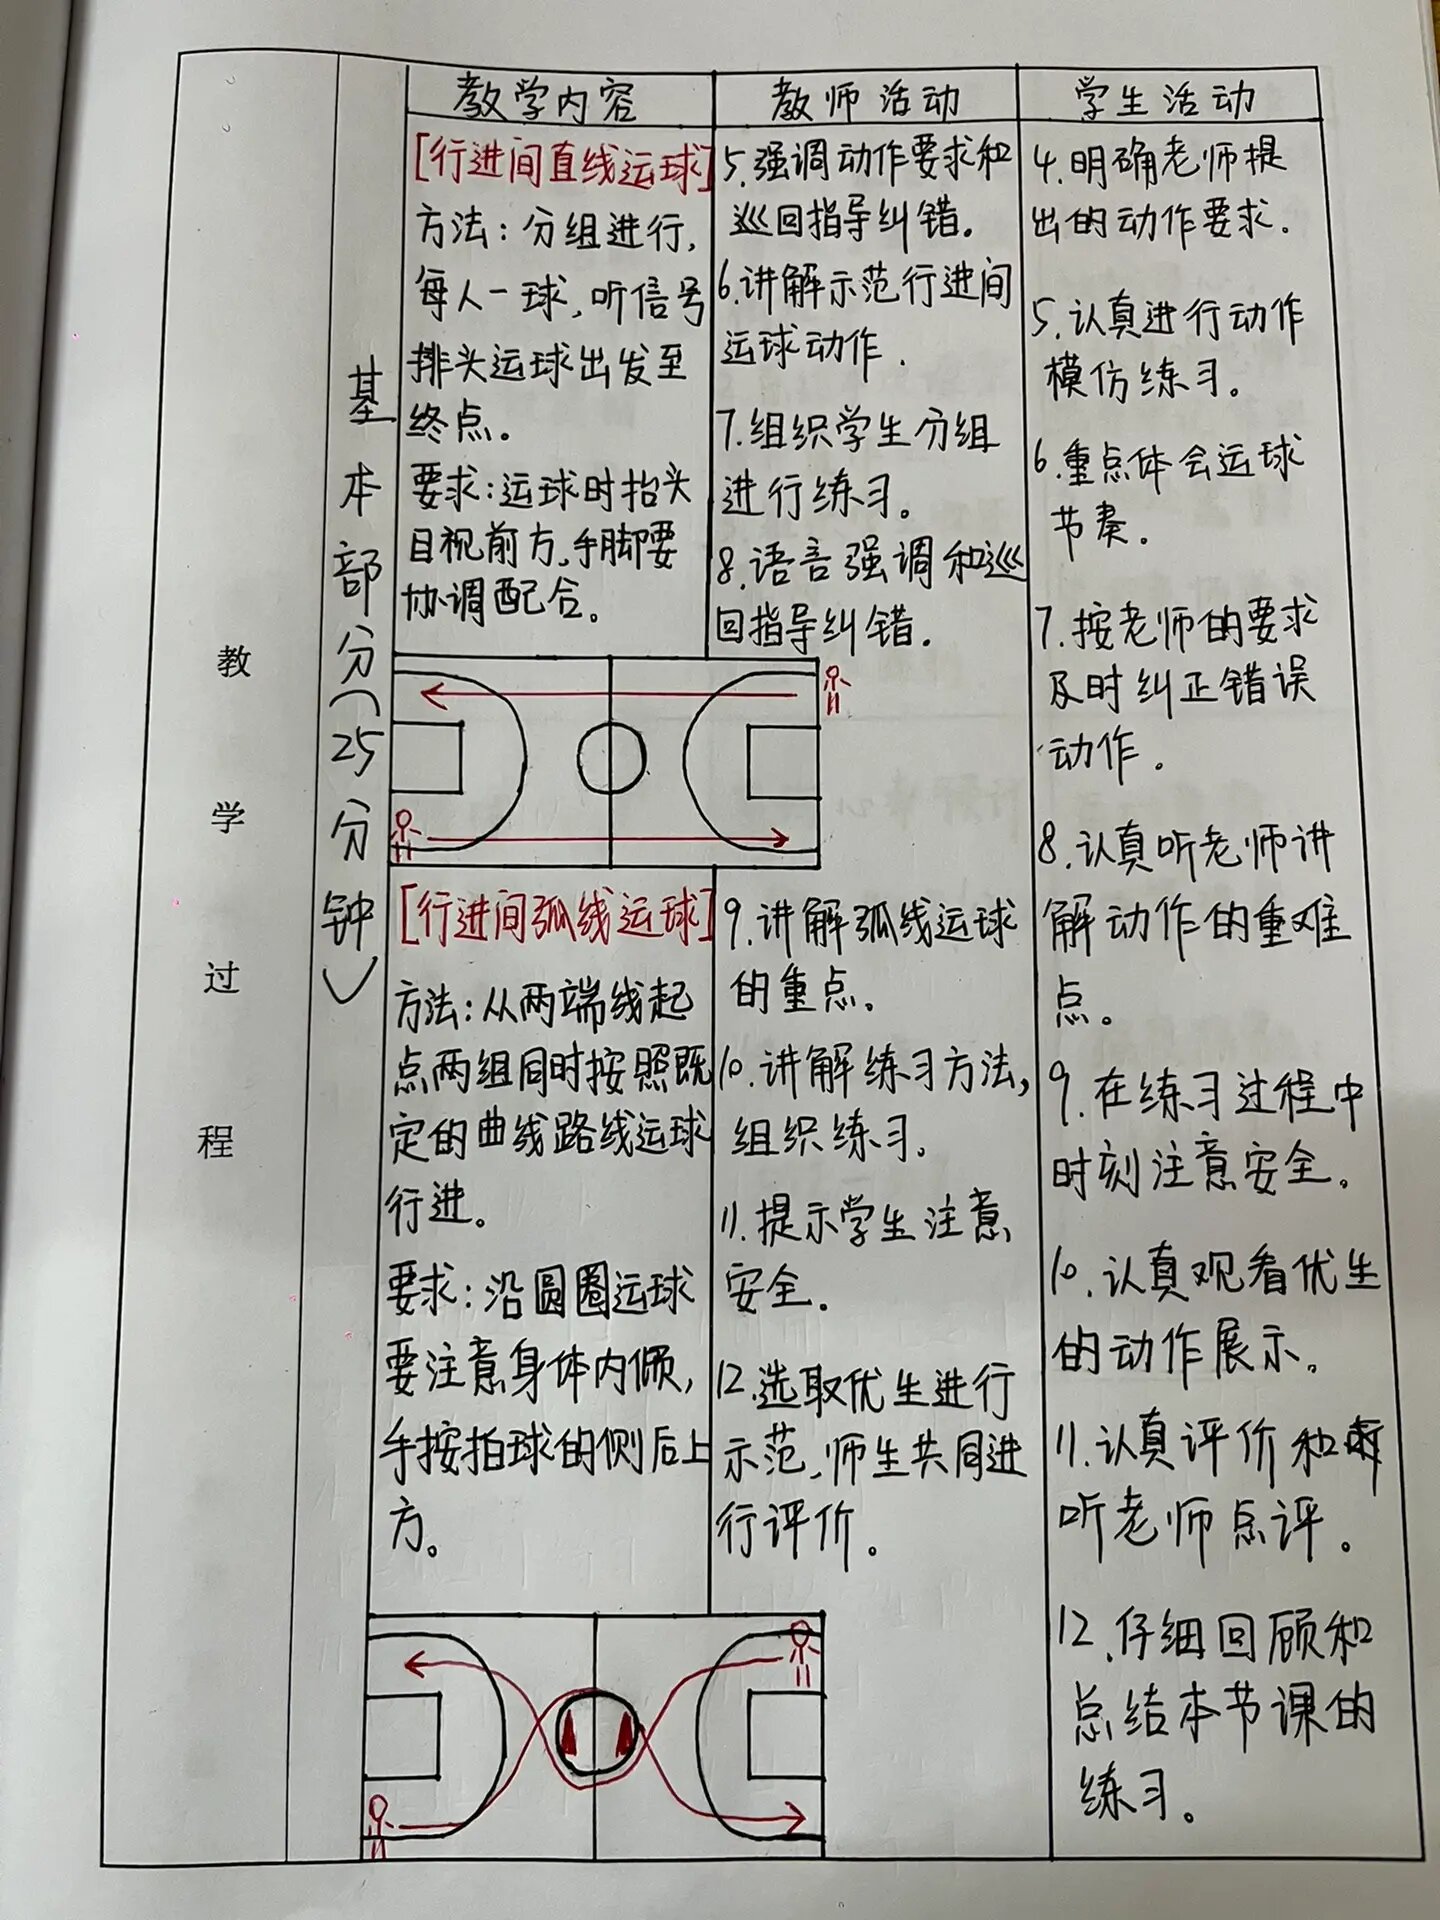 教学过程
基本部分(25分钟)
教学内容
[行进间直线运球]
方法：分组进行，
每人一球，听信号
排头运球出发至
终点。
要求：运球时抬头
目视前方，手脚要
协调配合。
[行进间弧线运球]
方法：从两端线起
点两组同时按照既
定的曲线路线运球
行进。
要求：沿圆圈运球
要注意身体内倾，
手按拍球的侧后上
方。
教师活动
5.强调动作要求和
巡回指导纠错。
6.讲解示范行进间
运球动作.
7.组织学生分组
进行练习。
8.语言强调和巡
回指导纠错.
9.讲解弧线运球
的重点。
10.讲解练习方法,
组织练习.
11.提示学生注意
安全.
12.选取优生进行
示范,师生共同进
行评价。
学生活动
4.明确老师提
出的动作要求.
5.认真进行动作
模仿练习。
6.重点体会运球
节奏.
7.按老师的要求
及时纠正错误
动作.
8.认真听老师讲
解动作的重难
点。
9.在练习过程中
时刻注意安全.
10.认真观看优生
的动作展示。
11.认真评价和
听老师点评。
12.仔细回顾和
总结本节课的
练习。